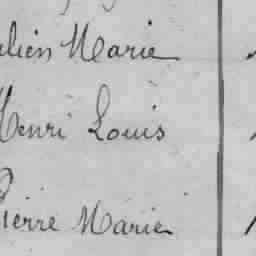 ulien Marie
Henri Louis
Pierre Marie